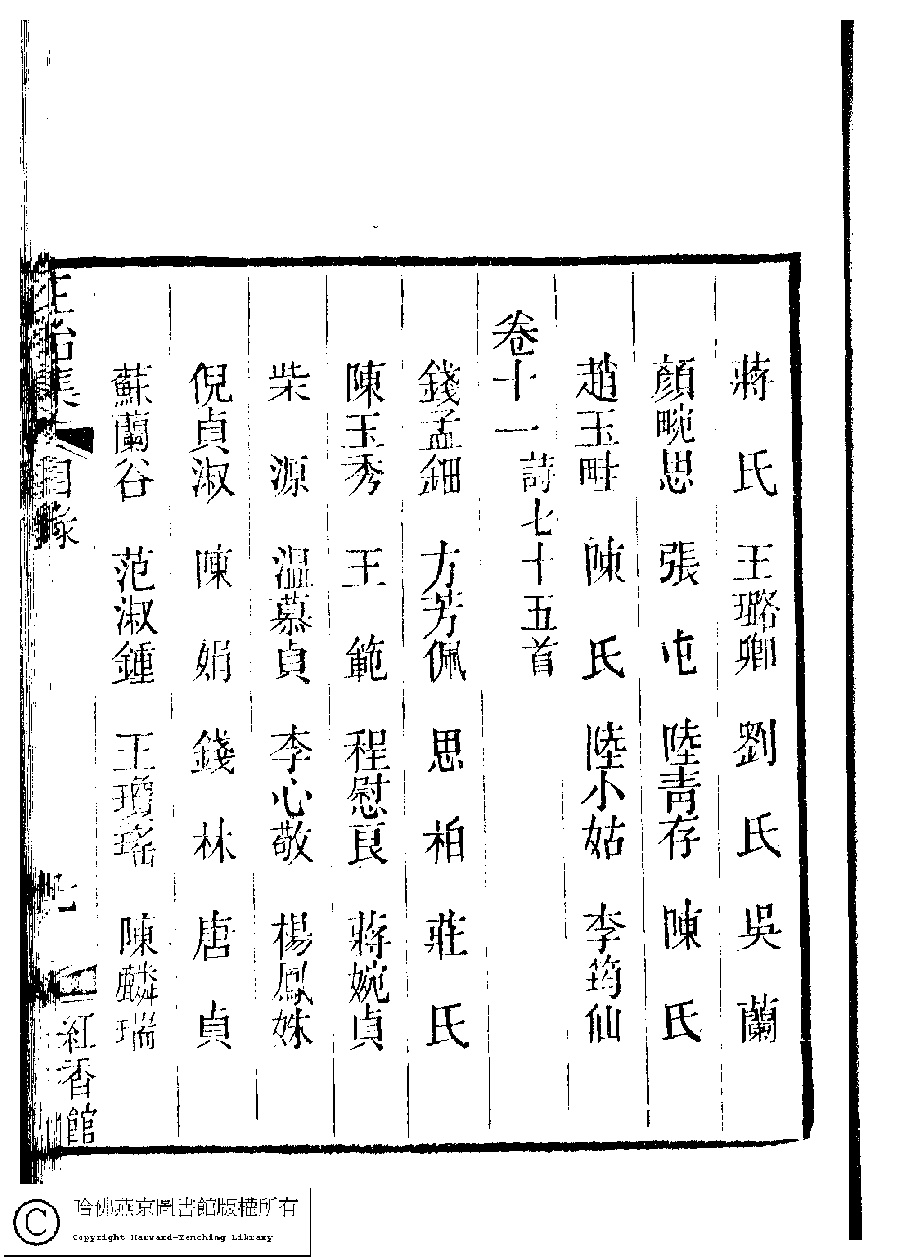 蔣　氏　王璐卿　劉　氏　吳　蘭
顏畹思　張　屯　陸青存　陳　氏
趙玉畦　陳　氏　陸小姑　李筠仙
卷十一　詩七十五首
錢孟鈿　方芳佩　思　柏　莊　氏
陳玉秀　王　範　程慰良　蔣婉貞
柴　源　溫慕貞　李心敬　楊鳳姝
倪貞淑　陳　娟　錢　林　唐　貞
蘇蘭谷　范淑鍾　王瓊瑤　陳麟瑞
正始集　目錄　紅香館
哈佛燕京圖書館版權所有
Copyright Harvard-Yenching Library